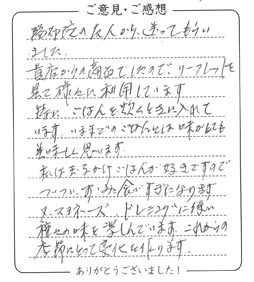 ご意見・ご感想
の友人から、送ってもらい
ました。
ので、リーフレットを
見て様々に利用しています
特に ごはんを炊くときに入れて
います。いままでのごはんとは味がとても
美味しく思います
私は玉子かけごはんが好きですので
ついつい すすみ食べすぎになります
又、マヨネーズ ドレッシングに使い
種々の味を楽しんでいます。これからの
季節にとって変化を作ります。
ありがとうございました!